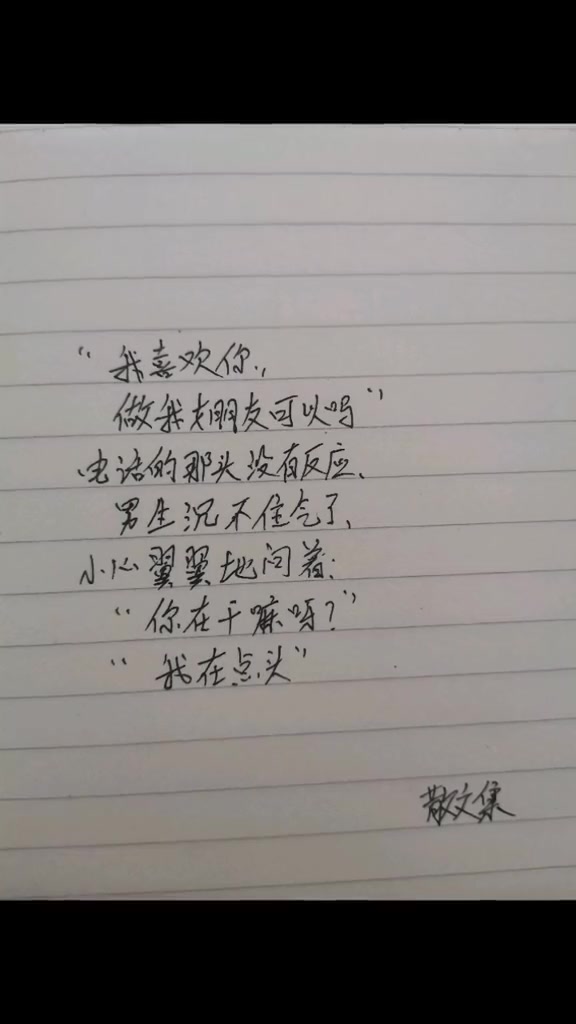 “我喜欢你,,
做我女朋友可以吗”
电话的那头没有反应、
男生沉不住气了、
小心翼翼地问着:
“你在干嘛呀?”
“我在点头”
散文集